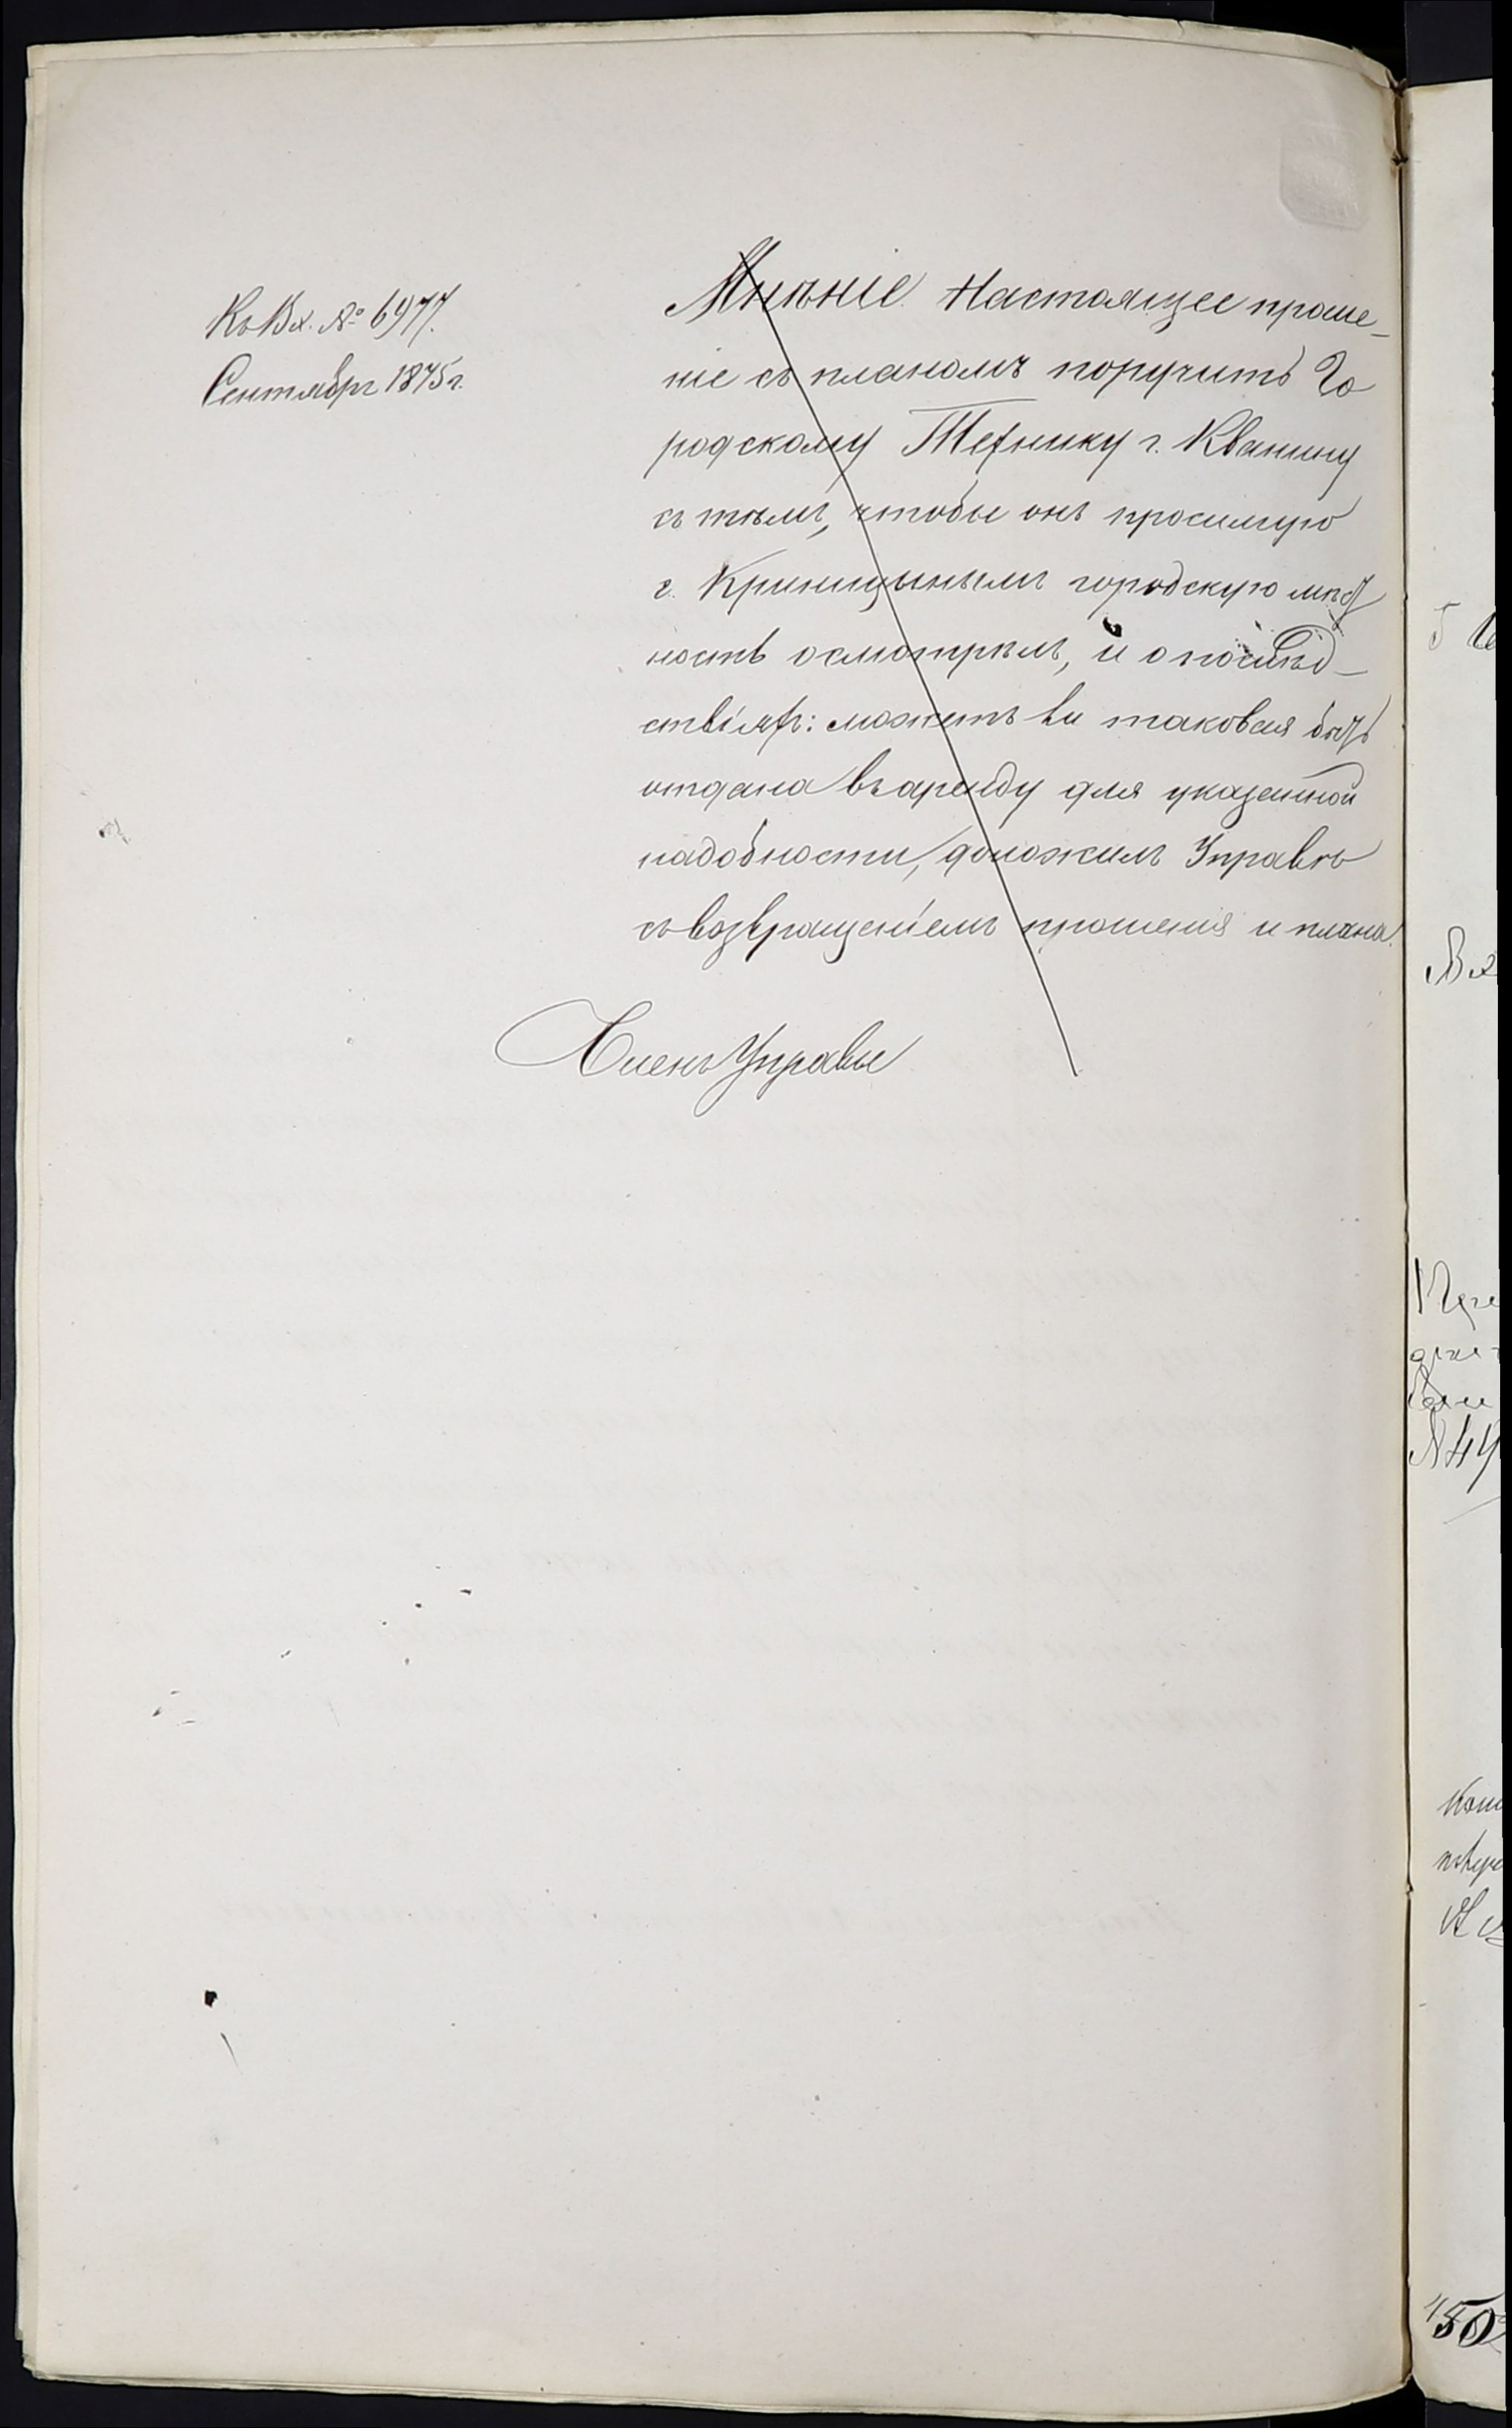 Къ Вх. № 6977.
Сентябрь 1875 г.
Мнѣніе. Настоящее проше-
ніе съ планомъ поручить Го
родскому Технику г. Кванину
съ тѣмъ, чтобы онъ просимую
г. Криницынымъ городскую мѣст
ность осмотрѣлъ, и о послѣд-
ствіяхъ: можетъ ли таковая быть
отдана въ аренду для указанной
надобности, доложилъ Управѣ
съ возвращеніемъ прошенія и плана.
Членъ Управы